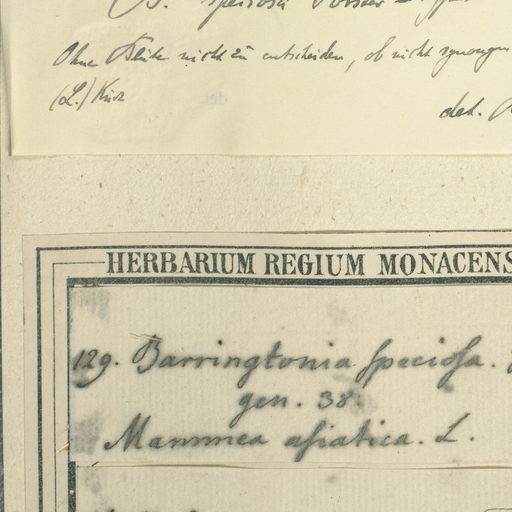 B. speciosa Forster
Ohne Blüte nicht zu entscheiden, ob nicht synonym
(L.) Kurz
det.
HERBARIUM REGIUM MONACENS
129. Barringtonia speciosa.
gen. 38.
Mammea asiatica. L.